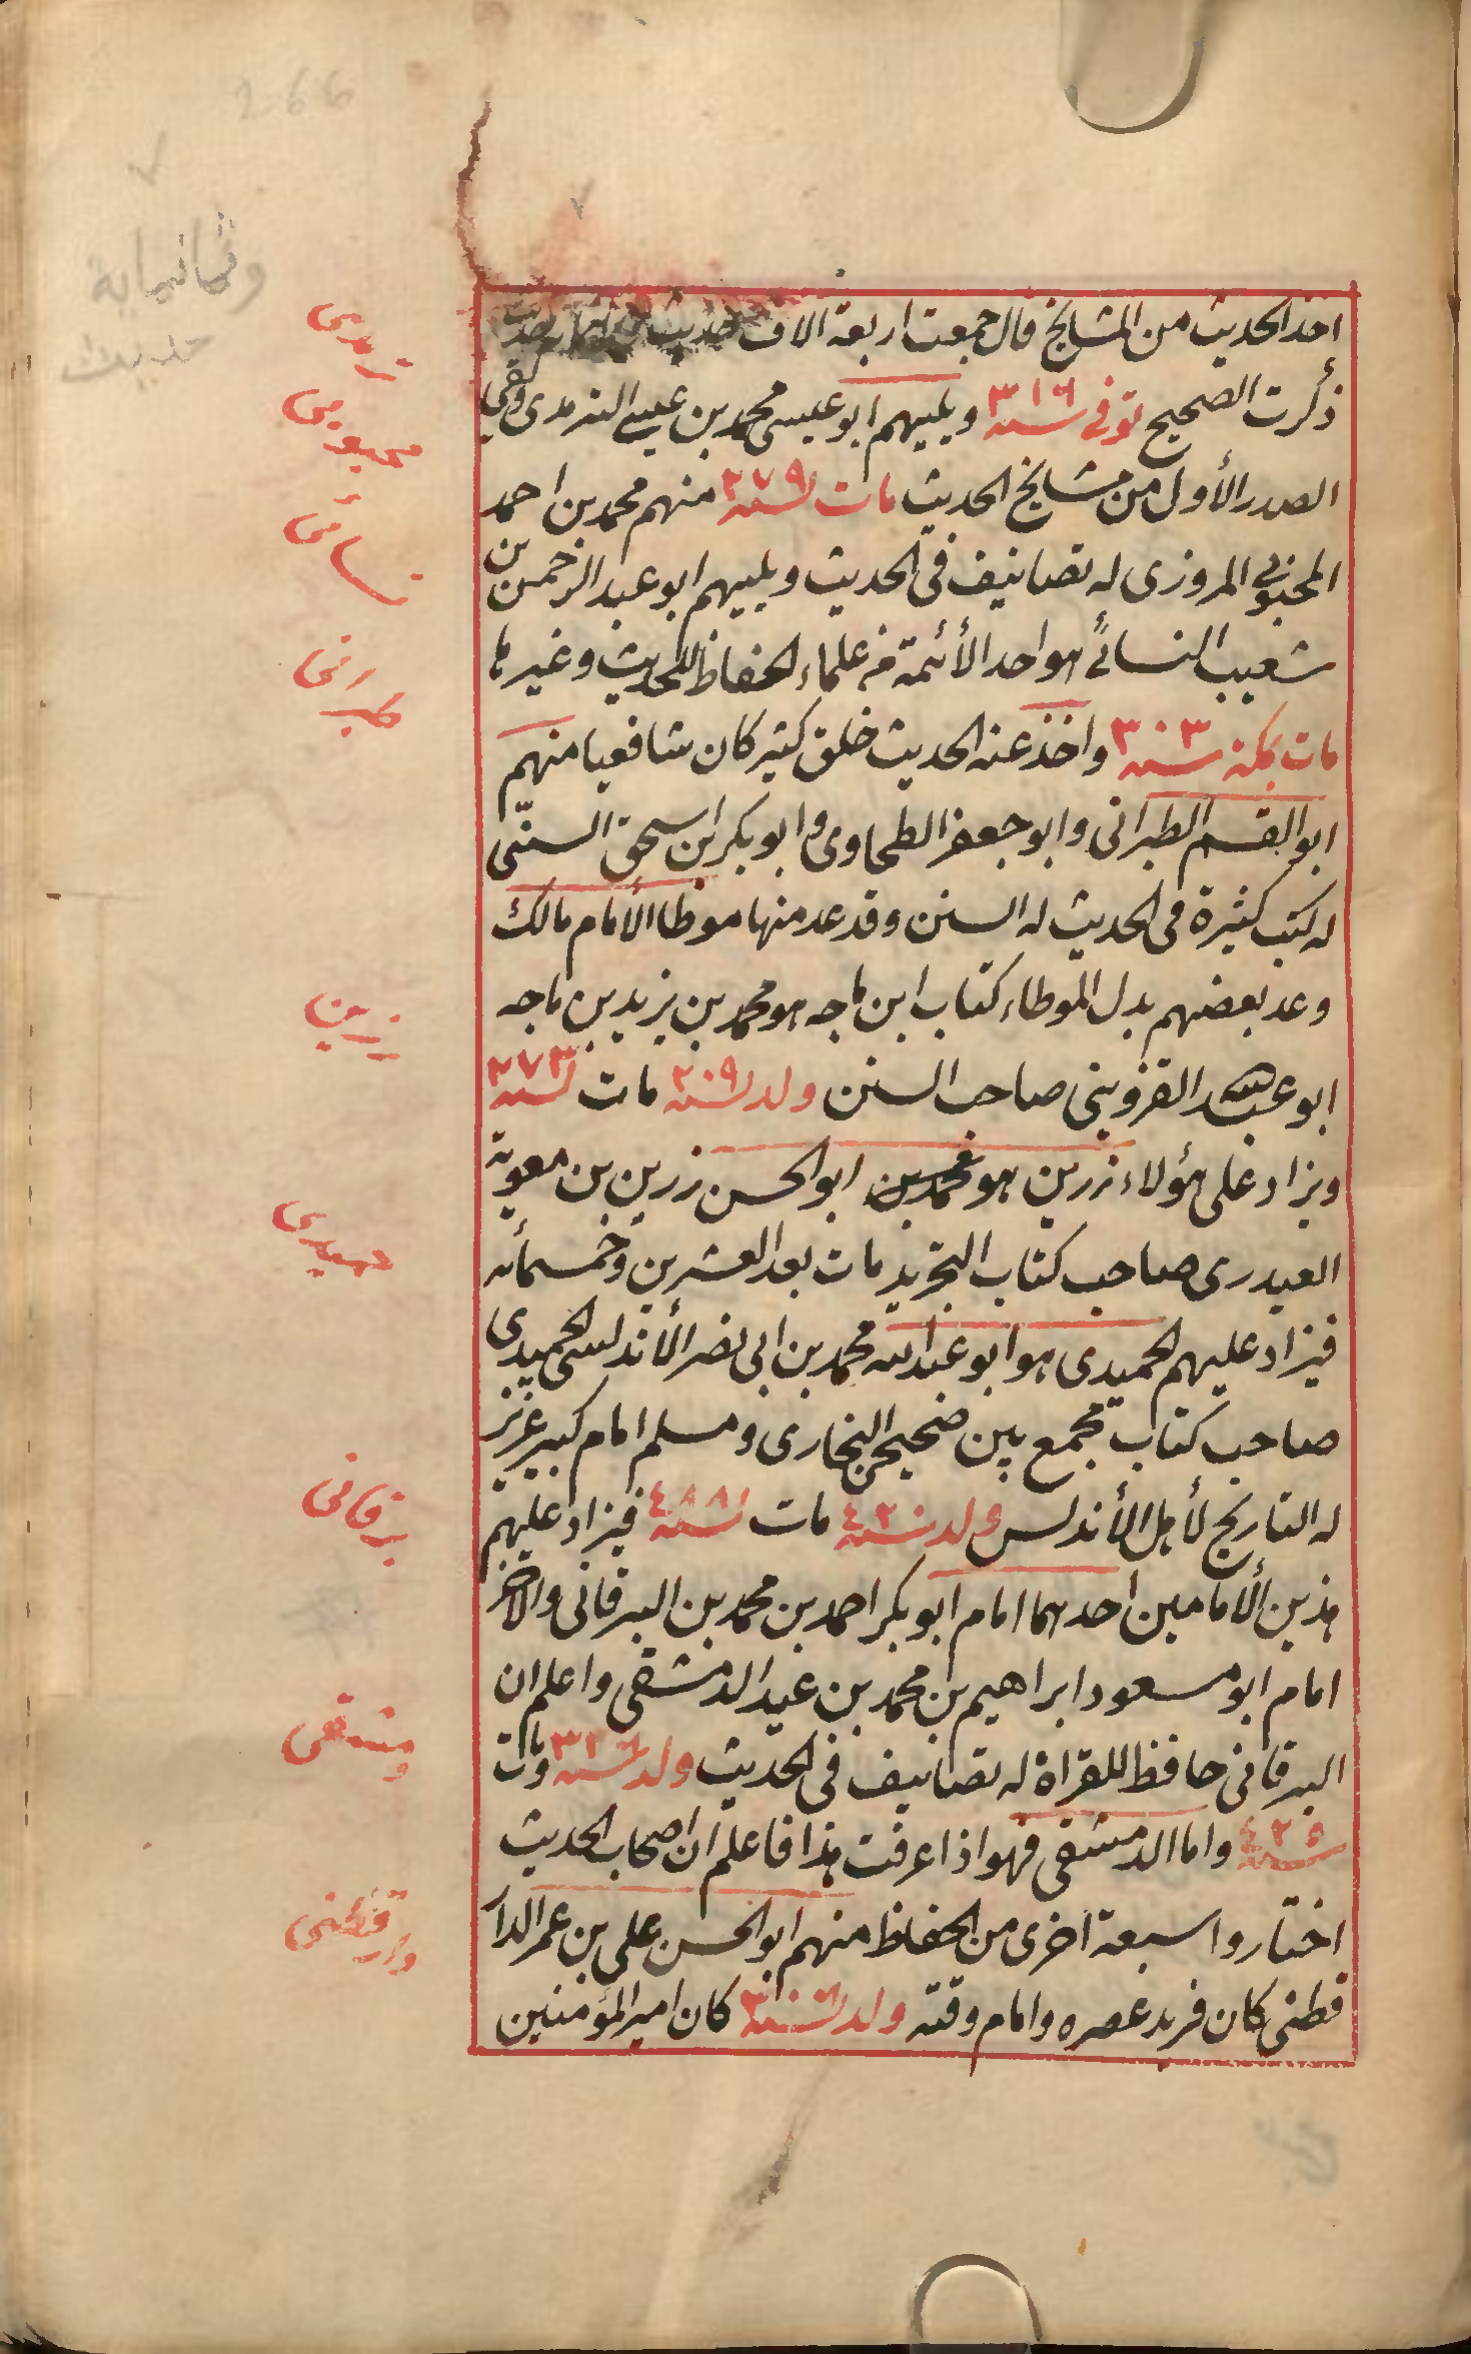 اخذ الحديث من المشايخ قال جمعت اربعة الاف حديث
ذكرت الصحيح توفى سنة ٣١٦ ويليهم ابو عيسى محمد بن عيسى الترمذى ولقى
الصدر الأول من مشايخ الحديث مات لسنة ٢٧٩ منهم محمد بن احمد
المحبوبى المروزى له تصانيف فى الحديث ويليهم ابو عبد الرحمن بن
شعيب النسائى هو احد الأئمة من علماء الحفاظ للحديث وغيرها
مات بمكة سنة ٣٠٣ واخذ عنه الحديث خلق كثير كان شافعيا منهم
ابو القسم الطبرانى وابو جعفر الطحاوى وابو بكر ابن اسحق السنّى
له كتب كثيرة فى الحديث له السنن وقد عد منها موطا الأمام مالك
وعد بعضهم بدل الموطاء كتاب ابن ماجه هو محمد بن يزيد بن ماجه
ابو عبد الله القزوينى صاحب السنن ولد لسنة ٢٠٩ مات لسنة ٢٧٣
ويزاد على هؤلاء زرين هو محمد بن ابو الحسن زرين بن معوية
العبدرى صاحب كتاب التجريد مات بعد العشرين وخمسمأنه
فيزاد عليهم الحميدى هو ابو عبد الله محمد بن ابى نصر الأندلسى الحميدى
صاحب كتاب مجمع بين صحيح البخارى ومسلم امام كبير عزيز
له التاريخ لأهل الأندلس ولد سنة ٤٢٠ مات لسنة ٤٨٨ فيزاد عليهم
هذين الأمامين احدهما امام ابو بكر احمد بن محمد بن البرقانى والاخر
امام ابو مسعود ابراهيم بن محمد بن عبيد الدمشقى واعلم ان
البرقانى حافظ للقراة له تصانيف فى الحديث ولد لسنة ٣٣٦ ومات
سنة ٤٢٥ واما الدمشقى فهو اذا عرفت هذا فاعلم ان اصحاب الحديث
اختاروا سبعة اخرى من الحفاظ منهم ابو الحسن على بن عمر الدار
قطنى كان فريد عصره وامام وقته ولد لسنة ٣٠٦ كان امير المؤمنين
266
وثمانماية
حديث
ترمدى
محبوبى
نسائى
طبرانى
زرين
حميدى
برقانى
دمشقى
دارقطنى